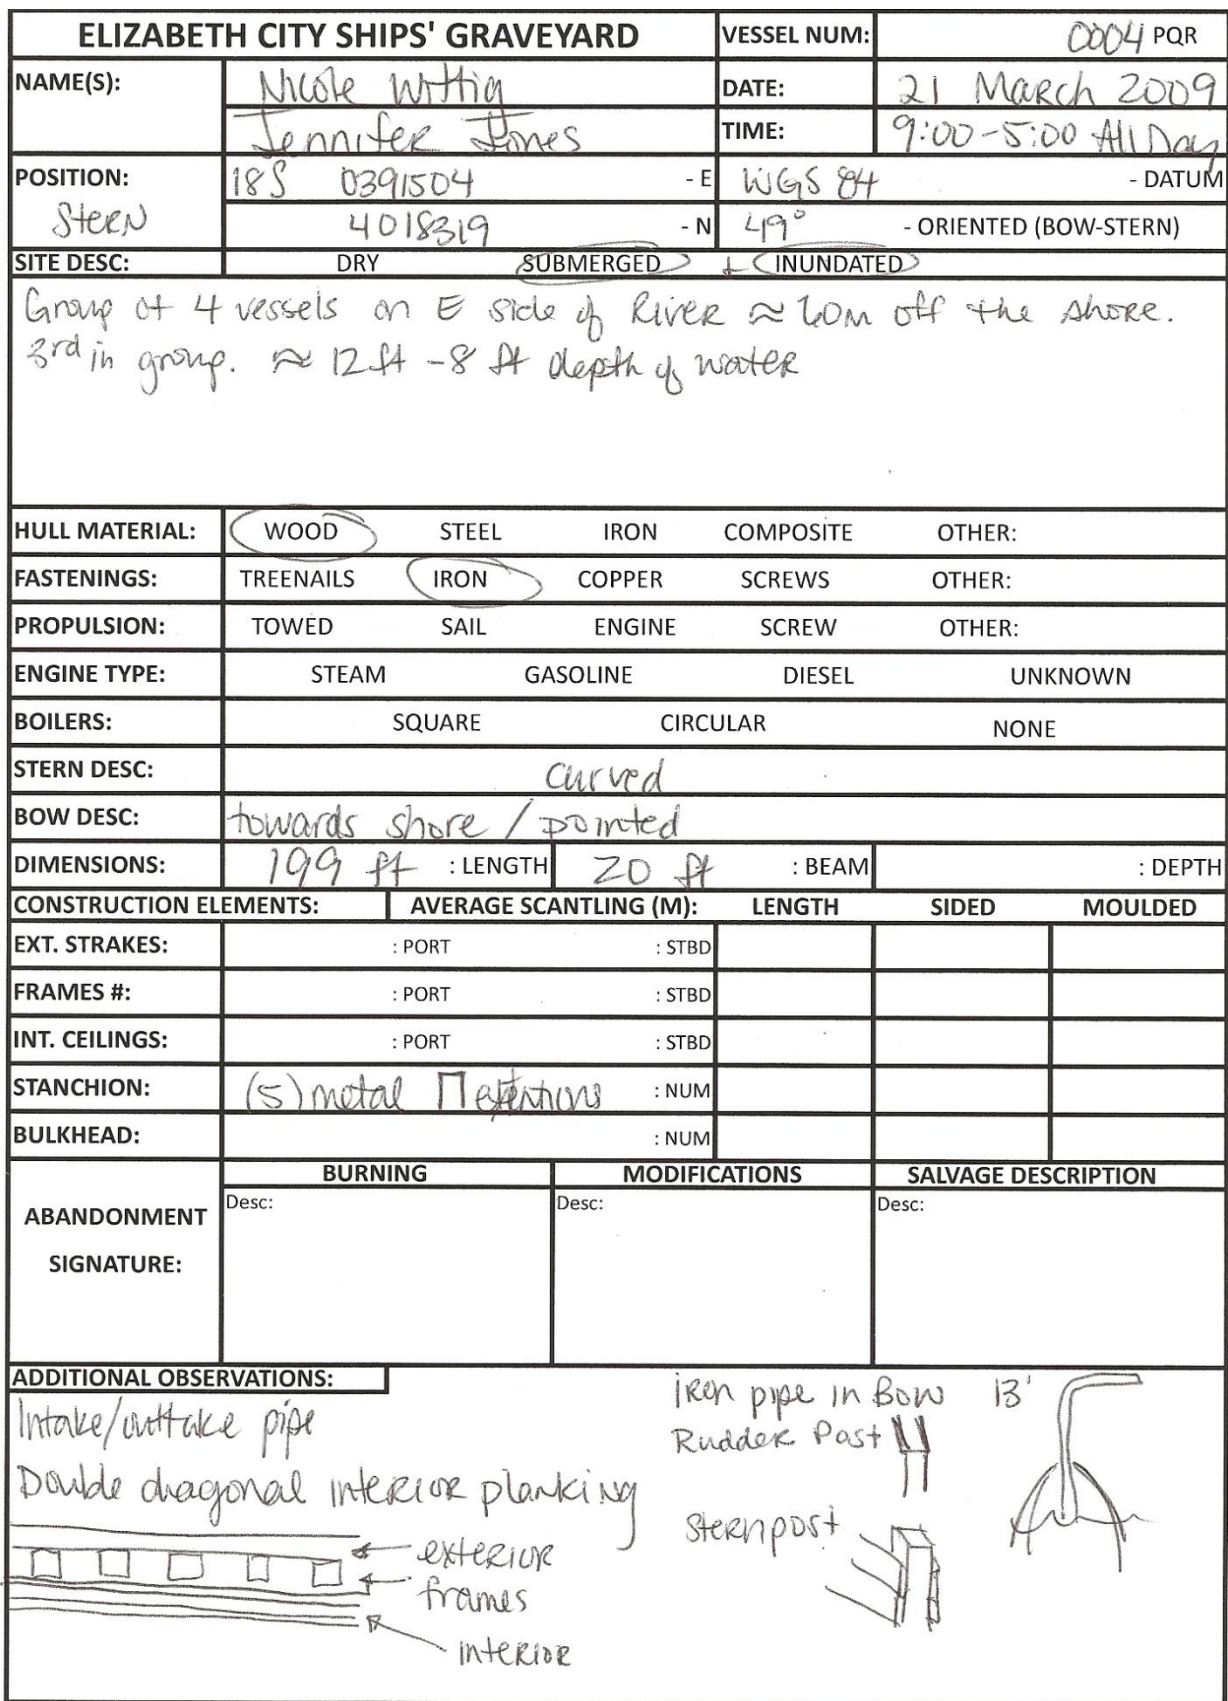 ELIZABETH CITY SHIPS' GRAVEYARD VESSEL NUM: 0004 PQR
NAME(S): Nicole Wittig DATE: 21 March 2009
Jennifer Jones TIME: 9:00-5:00 All Day
POSITION: 18S 0391504 - E WGS 84 - DATUM
Stern 4018319 - N 49° - ORIENTED (BOW-STERN)
SITE DESC: DRY SUBMERGED + INUNDATED
Group of 4 vessels on E side of River ≈ 60m off the shore.
3rd in group. ≈ 12 ft - 8 ft depth of water
HULL MATERIAL: WOOD STEEL IRON COMPOSITE OTHER:
FASTENINGS: TREENAILS IRON COPPER SCREWS OTHER:
PROPULSION: TOWED SAIL ENGINE SCREW OTHER:
ENGINE TYPE: STEAM GASOLINE DIESEL UNKNOWN
BOILERS: SQUARE CIRCULAR NONE
STERN DESC: curved
BOW DESC: towards shore / pointed
DIMENSIONS: 199 ft : LENGTH 20 ft : BEAM : DEPTH
CONSTRUCTION ELEMENTS: AVERAGE SCANTLING (M): LENGTH SIDED MOULDED
EXT. STRAKES: : PORT : STBD
FRAMES #: : PORT : STBD
INT. CEILINGS: : PORT : STBD
STANCHION: (5) metal : NUM
BULKHEAD: : NUM
BURNING MODIFICATIONS SALVAGE DESCRIPTION
ABANDONMENT Desc: Desc: Desc:
SIGNATURE:
ADDITIONAL OBSERVATIONS:
Intake/outtake pipe
Double diagonal interior planking
exterior
frames
interior
Iron pipe in Bow 13'
Rudder Post
Sternpost